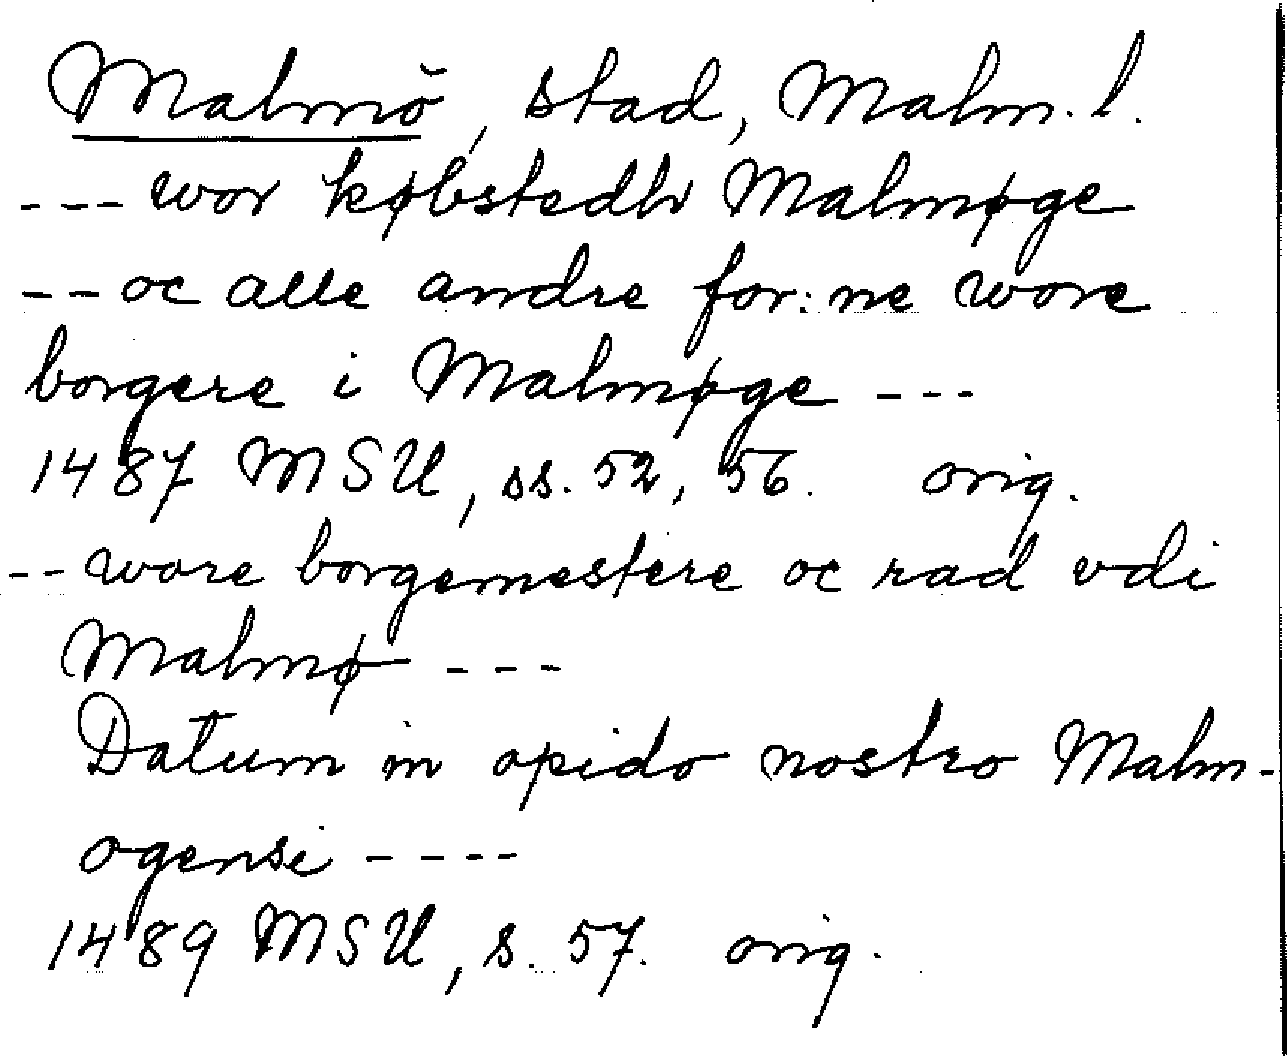 Malmö, stad, Malm. l.
--- wor købstedh Malmøge
-- oc alle andre for:ne wore
borgere i Malmøge ---
1487 MSU, ss. 52, 56. orig.
-- wore borgemestere oc rad vdi
Malmø ---
Datum in opido nostro Malm-
ogensi ----
1489 MSU, s. 57. orig.